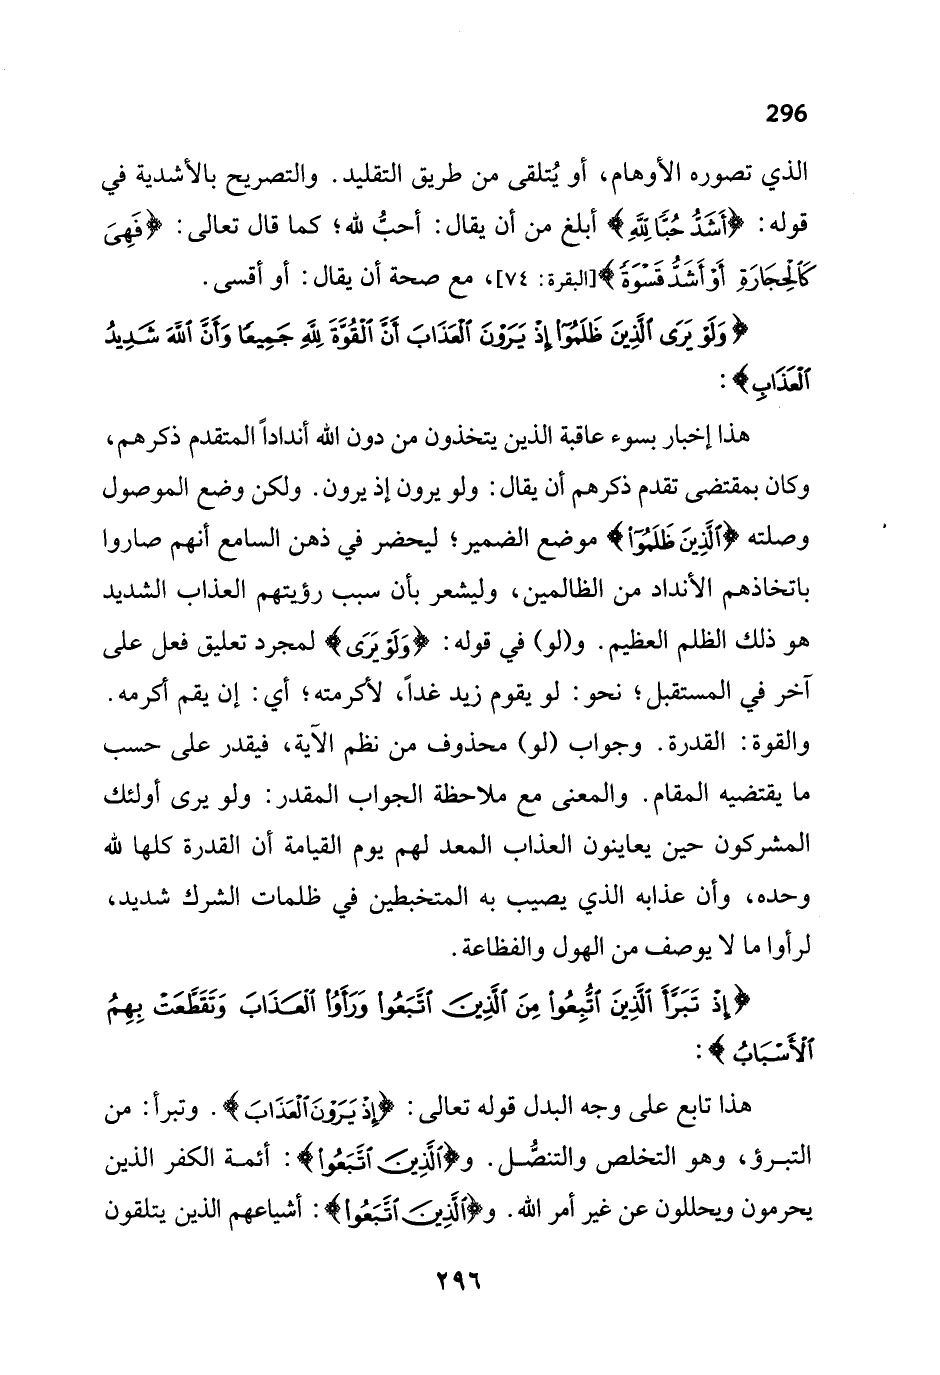 296
الذي تصوره الأوهام، أو يُتلقى من طريق التقليد. والتصريح بالأشدية في
قوله: ﴿أَشَدُّ حُبًّا لِلَّهِ﴾ أبلغ من أن يقال: أحبُّ لله؛ كما قال تعالى: ﴿فَهِيَ
كَٱلْحِجَارَةِ أَوْ أَشَدُّ قَسْوَةً﴾[البقرة: ٧٤]، مع صحة أن يقال: أو أقسى.
﴿وَلَوْ يَرَى ٱلَّذِينَ ظَلَمُوٓا۟ إِذْ يَرَوْنَ ٱلْعَذَابَ أَنَّ ٱلْقُوَّةَ لِلَّهِ جَمِيعًا وَأَنَّ ٱللَّهَ شَدِيدُ
ٱلْعَذَابِ﴾:
هذا إخبار بسوء عاقبة الذين يتخذون من دون الله أنداداً المتقدم ذكرهم،
وكان بمقتضى تقدم ذكرهم أن يقال: ولو يرون إذ يرون. ولكن وضع الموصول
وصلته ﴿ٱلَّذِينَ ظَلَمُوٓا۟﴾ موضع الضمير؛ ليحضر في ذهن السامع أنهم صاروا
باتخاذهم الأنداد من الظالمين، وليشعر بأن سبب رؤيتهم العذاب الشديد
هو ذلك الظلم العظيم. و(لو) في قوله: ﴿وَلَوْ يَرَى﴾ لمجرد تعليق فعل على
آخر في المستقبل؛ نحو: لو يقوم زيد غداً، لأكرمته؛ أي: إن يقم أكرمه.
والقوة: القدرة. وجواب (لو) محذوف من نظم الآية، فيقدر على حسب
ما يقتضيه المقام. والمعنى مع ملاحظة الجواب المقدر: ولو يرى أولئك
المشركون حين يعاينون العذاب المعد لهم يوم القيامة أن القدرة كلها لله
وحده، وأن عذابه الذي يصيب به المتخبطين في ظلمات الشرك شديد،
لرأوا ما لا يوصف من الهول والفظاعة.
﴿إِذْ تَبَرَّأَ ٱلَّذِينَ ٱتُّبِعُوا۟ مِنَ ٱلَّذِينَ ٱتَّبَعُوا۟ وَرَأَوُا۟ ٱلْعَذَابَ وَتَقَطَّعَتْ بِهِمُ
ٱلْأَسْبَابُ﴾:
هذا تابع على وجه البدل قوله تعالى: ﴿إِذْ يَرَوْنَ ٱلْعَذَابَ﴾. وتبرأ: من
التبرؤ، وهو التخلص والتنصُّل. و﴿ٱلَّذِينَ ٱتَّبَعُوا۟﴾: أئمة الكفر الذين
يحرمون ويحللون عن غير أمر الله. و﴿ٱلَّذِينَ ٱتَّبَعُوا۟﴾: أشياعهم الذين يتلقون
٢٩٦